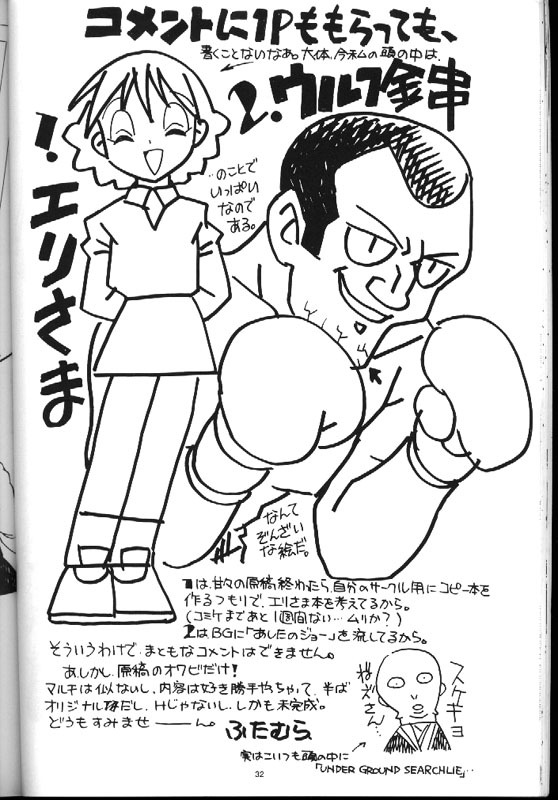 コメントに1Pももらっても、
書くことないなあ。大体、今私の頭の中は、
1.エリさま
2.ウルフ金串
…のことで
いっぱい
なので
ある。
なんて
ぞんざい
な絵だ。
1は、甘々の原稿終わたら、自分のサークル用にコピー本を
作るつもりで、エリさま本を考えてるから。
(コミケまであと1週間ない…ムリか?)
2はBGに「あしたのジョー」を流してるから。
そういうわけで、まともなコメントはできません。
あ、しかし、原稿のオワビだけ!
マルチは似ないし、内容は好き勝手やちゃって、半ば
オリジナル体だし、Hじゃないし、しかも未完成。
どうもすみませーーん。
ふたむら
スケキヨ
ねえさん…
実はこいつも頭の中に
「UNDER GROUND SEARCHLIE」…
32